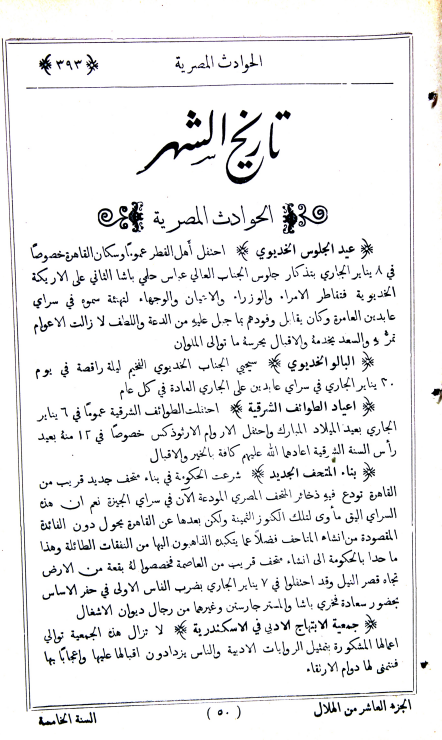 الحوادث المصرية
﴿٣٩٣﴾
تاريخ الشهر
الحوادث المصرية
﴿ عيد الجلوس الخديوي ﴾ احتفل أهل القطر عموماً وسكان القاهرة خصوصاً
في ٨ يناير الجاري بتذكار جلوس الجناب العالي عباس حلمي باشا الثاني على الاريكة
الخديوية فتقاطر الامراء والوزراء والاعيان والوجهاء لتهنئة سموه في سراي
عابدين العامرة وكان يقابل وفودهم بما جبل عليه من الدعة واللطف لا زالت الاعوام
تمرُّ به والسعد يخدمهُ والاقبال يحرسهُ ما توالى الملوان
﴿ البالو الخديوي ﴾ سيحيي الجناب الخديوي الفخيم ليلة راقصة في يوم
٢٠ يناير الجاري في سراي عابدين على الجاري العادة في كل عام
﴿ اعياد الطوائف الشرقية ﴾ احتفلت الطوائف الشرقية عموماً في ٦ يناير
الجاري بعيد الميلاد المبارك واحتفل الاروام الارثوذكس خصوصاً في ١٢ منهُ بعيد
رأس السنة الشرقية اعادهما الله عليهم كافة بالخير والاقبال
﴿ بناء المتحف الجديد ﴾ شرعت الحكومة في بناء متحف جديد قريب من
القاهرة تودع فيهِ ذخائر المتحف المصري المودعة الآن في سراي الجيزة نعم ان هذه
السراي اليق مأوى لتلك الكنوز الثمينة ولكن بعدها عن القاهرة يحول دون الفائدة
المقصودة من انشاء المتاحف فضلاً عما يتكبده الذاهبون اليها من النفقات الطائلة وهذا
ما حدا بالحكومة الى انشاء متحف قريب من العاصمة فخصصوا لهُ بقعة من الارض
تجاه قصر النيل وقد احتفلوا في ٧ يناير الجاري بضرب الفاس الاولى في حفر الاساس
بحضور سعادة فخري باشا والمستر جارستن وغيرهما من رجال ديوان الاشغال
﴿ جمعية الابتهاج الادبي في الاسكندرية ﴾ لا تزال هذه الجمعية توالي
اعمالها المشكورة بتمثيل الروايات الادبية والناس يزدادون اقبالها عليها واعجاباً بها
فنتمنى لها دوام الارتقاء
الجزء العاشر من الهلال
( ٥٠ )
السنة الخامسة